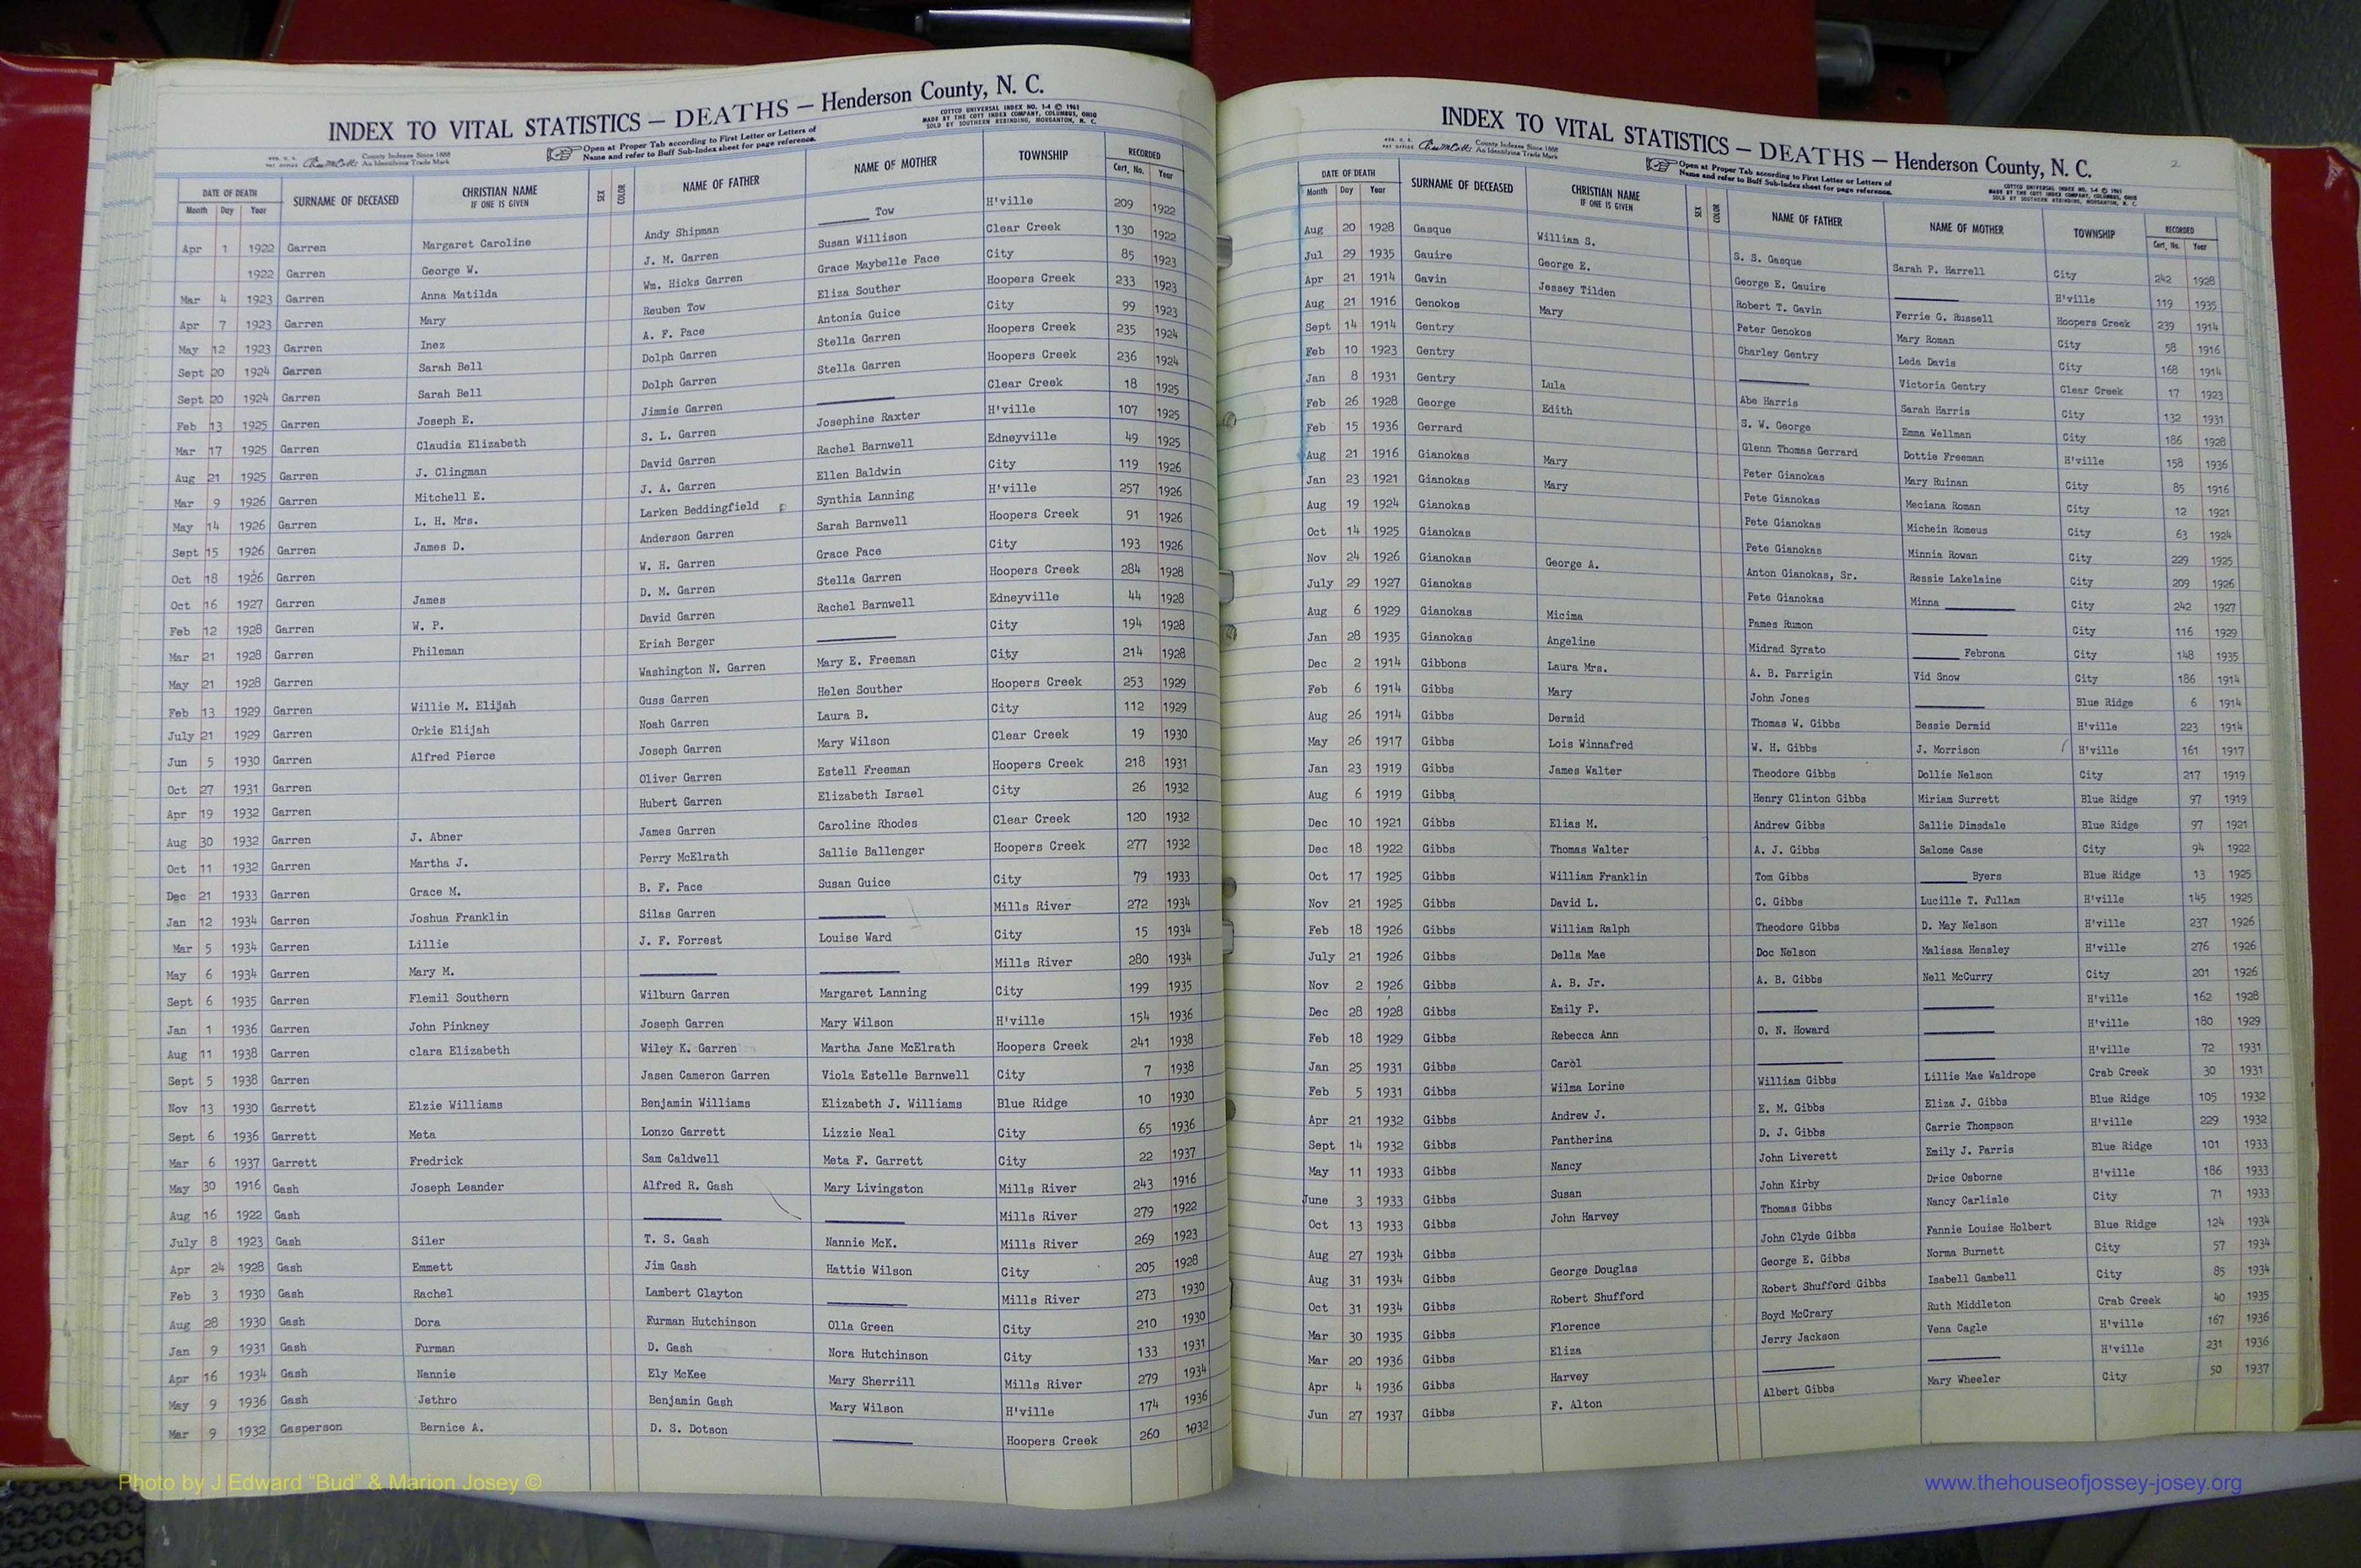 INDEX TO VITAL STATISTICS — DEATHS — Henderson County, N. C.
COTTCO UNIVERSAL INDEX NO. 1-4 © 1961
MADE BY THE COTT INDEX COMPANY, COLUMBUS, OHIO
SOLD BY SOUTHERN REBINDING, MORGANTON, N. C.
County Indexes Since 1888
An Identifying Trade Mark
Open at Proper Tab according to First Letter or Letters of
Name and refer to Buff Sub-Index sheet for page reference.
DATE OF DEATH SURNAME OF DECEASED CHRISTIAN NAME IF ONE IS GIVEN SEX COLOR NAME OF FATHER NAME OF MOTHER TOWNSHIP RECORDED
Month Day Year Cert. No. Year
Apr 1 1922 Garren Margaret Caroline Andy Shipman ____ Tow H'ville 209 1922
1922 Garren George W. J. M. Garren Susan Willison Clear Creek 130 1922
Mar 4 1923 Garren Anna Matilda Wm. Hicks Garren Grace Maybelle Pace City 85 1923
Apr 7 1923 Garren Mary Reuben Tow Eliza Souther Hoopers Creek 233 1923
May 12 1923 Garren Inez A. F. Pace Antonia Guice City 99 1923
Sept 20 1924 Garren Sarah Bell Dolph Garren Stella Garren Hoopers Creek 235 1924
Sept 20 1924 Garren Sarah Bell Dolph Garren Stella Garren Hoopers Creek 236 1924
Feb 13 1925 Garren Joseph E. Jimmie Garren ____ Clear Creek 18 1925
Mar 17 1925 Garren Claudia Elizabeth S. L. Garren Josephine Raxter H'ville 107 1925
Aug 21 1925 Garren J. Clingman David Garren Rachel Barnwell Edneyville 49 1925
Mar 9 1926 Garren Mitchell E. J. A. Garren Ellen Baldwin City 119 1926
May 14 1926 Garren L. H. Mrs. Larken Beddingfield Synthia Lanning H'ville 257 1926
Sept 15 1926 Garren James D. Anderson Garren Sarah Barnwell Hoopers Creek 91 1926
Oct 18 1926 Garren W. H. Garren Grace Pace City 193 1926
Oct 16 1927 Garren James D. M. Garren Stella Garren Hoopers Creek 284 1928
Feb 12 1928 Garren W. P. David Garren Rachel Barnwell Edneyville 44 1928
Mar 21 1928 Garren Phileman Eriah Berger ____ City 194 1928
May 21 1928 Garren Washington N. Garren Mary E. Freeman City 214 1928
Feb 13 1929 Garren Willie M. Elijah Guss Garren Helen Souther Hoopers Creek 253 1929
July 21 1929 Garren Orkie Elijah Noah Garren Laura B. City 112 1929
Jun 5 1930 Garren Alfred Pierce Joseph Garren Mary Wilson Clear Creek 19 1930
Oct 27 1931 Garren Oliver Garren Estell Freeman Hoopers Creek 218 1931
Apr 19 1932 Garren Hubert Garren Elizabeth Israel City 26 1932
Aug 30 1932 Garren J. Abner James Garren Caroline Rhodes Clear Creek 120 1932
Oct 11 1932 Garren Martha J. Perry McElrath Sallie Ballenger Hoopers Creek 277 1932
Dec 21 1933 Garren Grace M. B. F. Pace Susan Guice City 79 1933
Jan 12 1934 Garren Joshua Franklin Silas Garren ____ Mills River 272 1934
Mar 5 1934 Garren Lillie J. F. Forrest Louise Ward City 15 1934
May 6 1934 Garren Mary M. ____ ____ Mills River 280 1934
Sept 6 1935 Garren Flemil Southern Wilburn Garren Margaret Lanning City 199 1935
Jan 1 1936 Garren John Pinkney Joseph Garren Mary Wilson H'ville 154 1936
Aug 11 1938 Garren clara Elizabeth Wiley K. Garren Martha Jane McElrath Hoopers Creek 241 1938
Sept 5 1938 Garren Jasen Cameron Garren Viola Estelle Barnwell City 7 1938
Nov 13 1930 Garrett Elzie Williams Benjamin Williams Elizabeth J. Williams Blue Ridge 10 1930
Sept 6 1936 Garrett Meta Lonzo Garrett Lizzie Neal City 65 1936
Mar 6 1937 Garrett Fredrick Sam Caldwell Meta F. Garrett City 22 1937
May 30 1916 Gash Joseph Leander Alfred R. Gash Mary Livingston Mills River 243 1916
Aug 16 1922 Gash ____ ____ Mills River 279 1922
July 8 1923 Gash Siler T. S. Gash Nannie McK. Mills River 269 1923
Apr 24 1928 Gash Emmett Jim Gash Hattie Wilson City 205 1928
Feb 3 1930 Gash Rachel Lambert Clayton ____ Mills River 273 1930
Aug 28 1930 Gash Dora Furman Hutchinson Olla Green City 210 1930
Jan 9 1931 Gash Furman D. Gash Nora Hutchinson City 133 1931
Apr 16 1934 Gash Nannie Ely McKee Mary Sherrill Mills River 279 1934
May 9 1936 Gash Jethro Benjamin Gash Mary Wilson H'ville 174 1936
Mar 9 1932 Gasperson Bernice A. D. S. Dotson ____ Hoopers Creek 260 1932
INDEX TO VITAL STATISTICS — DEATHS — Henderson County, N. C.
2
COTTCO UNIVERSAL INDEX NO. 1-4 © 1961
MADE BY THE COTT INDEX COMPANY, COLUMBUS, OHIO
SOLD BY SOUTHERN REBINDING, MORGANTON, N. C.
County Indexes Since 1888
An Identifying Trade Mark
Open at Proper Tab according to First Letter or Letters of
Name and refer to Buff Sub-Index sheet for page reference.
DATE OF DEATH SURNAME OF DECEASED CHRISTIAN NAME IF ONE IS GIVEN SEX COLOR NAME OF FATHER NAME OF MOTHER TOWNSHIP RECORDED
Month Day Year Cert. No. Year
Aug 20 1928 Gasque William S. S. S. Gasque Sarah P. Harrell City 242 1928
Jul 29 1935 Gauire George E. George E. Gauire ____ H'ville 119 1935
Apr 21 1914 Gavin Jessey Tilden Robert T. Gavin Ferrie G. Russell Hoopers Creek 239 1914
Aug 21 1916 Genokos Mary Peter Genokos Mary Roman City 58 1916
Sept 14 1914 Gentry Charley Gentry Leda Davis City 168 1914
Feb 10 1923 Gentry ____ Victoria Gentry Clear Creek 17 1923
Jan 8 1931 Gentry Lula Abe Harris Sarah Harris City 132 1931
Feb 26 1928 George Edith S. W. George Emma Wellman City 186 1928
Feb 15 1936 Gerrard Glenn Thomas Gerrard Dottie Freeman H'ville 158 1936
Aug 21 1916 Gianokas Mary Peter Gianokas Mary Ruinan City 85 1916
Jan 23 1921 Gianokas Mary Pete Gianokas Meciana Roman City 12 1921
Aug 19 1924 Gianokas Pete Gianokas Michein Romeus City 63 1924
Oct 14 1925 Gianokas Pete Gianokas Minnia Rowan City 229 1925
Nov 24 1926 Gianokas George A. Anton Gianokas, Sr. Ressie Lakelaine City 209 1926
July 29 1927 Gianokas Pete Gianokas Minna ____ City 242 1927
Aug 6 1929 Gianokas Micima Pames Rumon ____ City 116 1929
Jan 28 1935 Gianokas Angeline Midrad Syrato ____ Febrona City 148 1935
Dec 2 1914 Gibbons Laura Mrs. A. B. Parrigin Vid Snow City 186 1914
Feb 6 1914 Gibbs Mary John Jones ____ Blue Ridge 6 1914
Aug 26 1914 Gibbs Dermid Thomas W. Gibbs Bessie Dermid H'ville 223 1914
May 26 1917 Gibbs Lois Winnafred W. H. Gibbs J. Morrison H'ville 161 1917
Jan 23 1919 Gibbs James Walter Theodore Gibbs Dollie Nelson City 217 1919
Aug 6 1919 Gibbs Henry Clinton Gibbs Miriam Surrett Blue Ridge 97 1919
Dec 10 1921 Gibbs Elias M. Andrew Gibbs Sallie Dimsdale Blue Ridge 97 1921
Dec 18 1922 Gibbs Thomas Walter A. J. Gibbs Salome Case City 94 1922
Oct 17 1925 Gibbs William Franklin Tom Gibbs ____ Byers Blue Ridge 13 1925
Nov 21 1925 Gibbs David L. C. Gibbs Lucille T. Fullam H'ville 145 1925
Feb 18 1926 Gibbs William Ralph Theodore Gibbs D. May Nelson H'ville 237 1926
July 21 1926 Gibbs Della Mae Doc Nelson Malissa Hensley H'ville 276 1926
Nov 2 1926 Gibbs A. B. Jr. A. B. Gibbs Nell McCurry City 201 1926
Dec 28 1928 Gibbs Emily P. ____ ____ H'ville 162 1928
Feb 18 1929 Gibbs Rebecca Ann O. N. Howard ____ H'ville 180 1929
Jan 25 1931 Gibbs Carol ____ ____ H'ville 72 1931
Feb 5 1931 Gibbs Wilma Lorine William Gibbs Lillie Mae Waldrope Crab Creek 30 1931
Apr 21 1932 Gibbs Andrew J. E. M. Gibbs Eliza J. Gibbs Blue Ridge 105 1932
Sept 14 1932 Gibbs Pantherina D. J. Gibbs Carrie Thompson H'ville 229 1932
May 11 1933 Gibbs Nancy John Liverett Emily J. Parris Blue Ridge 101 1933
June 3 1933 Gibbs Susan John Kirby Drice Osborne H'ville 186 1933
Oct 13 1933 Gibbs John Harvey Thomas Gibbs Nancy Carlisle City 71 1933
Aug 27 1934 Gibbs John Clyde Gibbs Fannie Louise Holbert Blue Ridge 124 1934
Aug 31 1934 Gibbs George Douglas George E. Gibbs Norma Burnett City 57 1934
Oct 31 1934 Gibbs Robert Shufford Robert Shufford Gibbs Isabell Gambell City 85 1934
Mar 30 1935 Gibbs Florence Boyd McCrary Ruth Middleton Crab Creek 40 1935
Mar 20 1936 Gibbs Eliza Jerry Jackson Vena Cagle H'ville 167 1936
Apr 4 1936 Gibbs Harvey ____ ____ H'ville 231 1936
Jun 27 1937 Gibbs F. Alton Albert Gibbs Mary Wheeler City 50 1937
Photo by J Edward “Bud” & Marion Josey ©
www.thehouseofjossey-josey.org